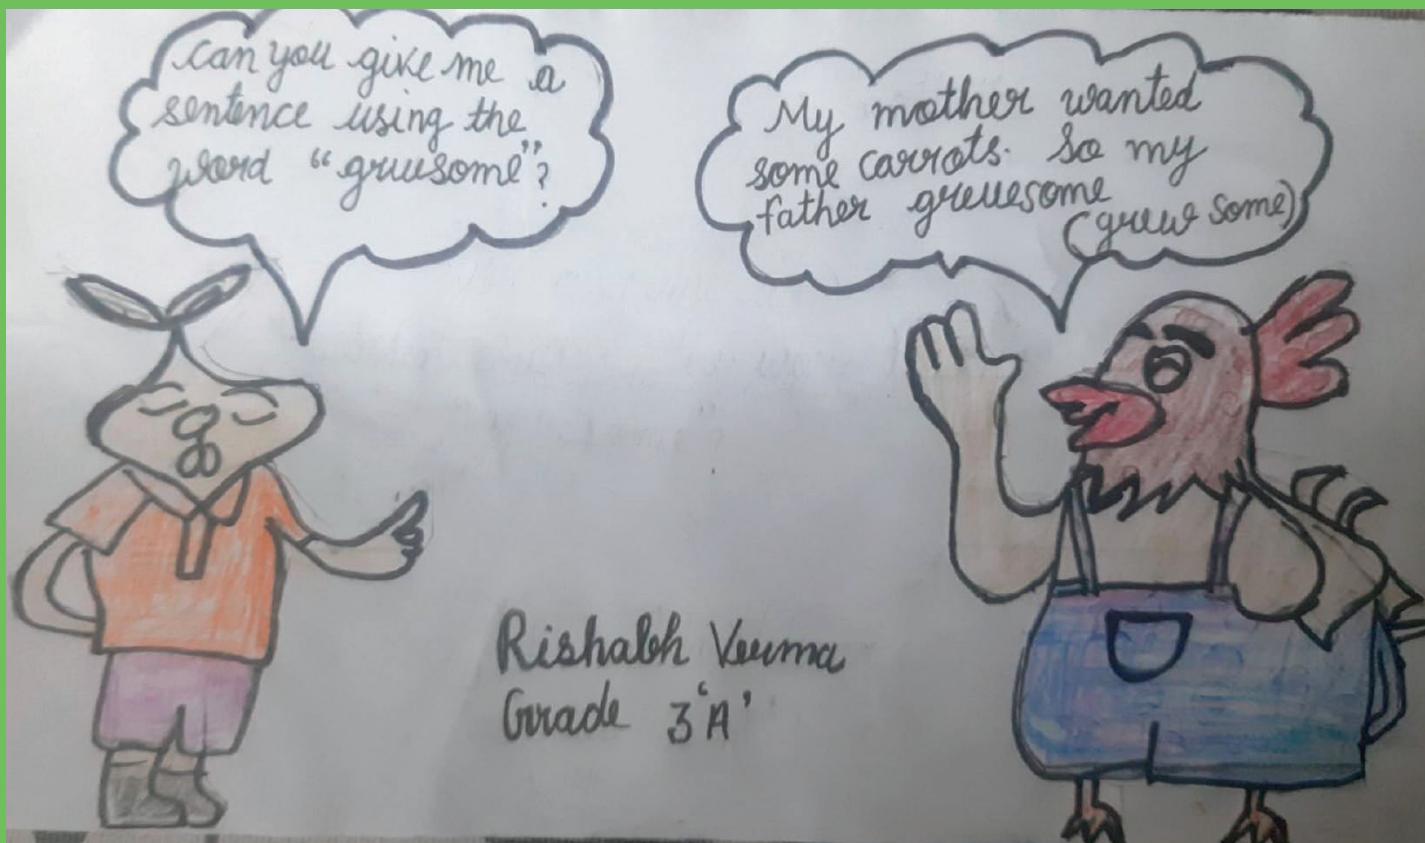 Can you give me a
sentence using the
word "gruesome"?
My mother wanted
some carrots. So my
father gruesome
(grew some)
Rishabh Verma
Grade 3'A'